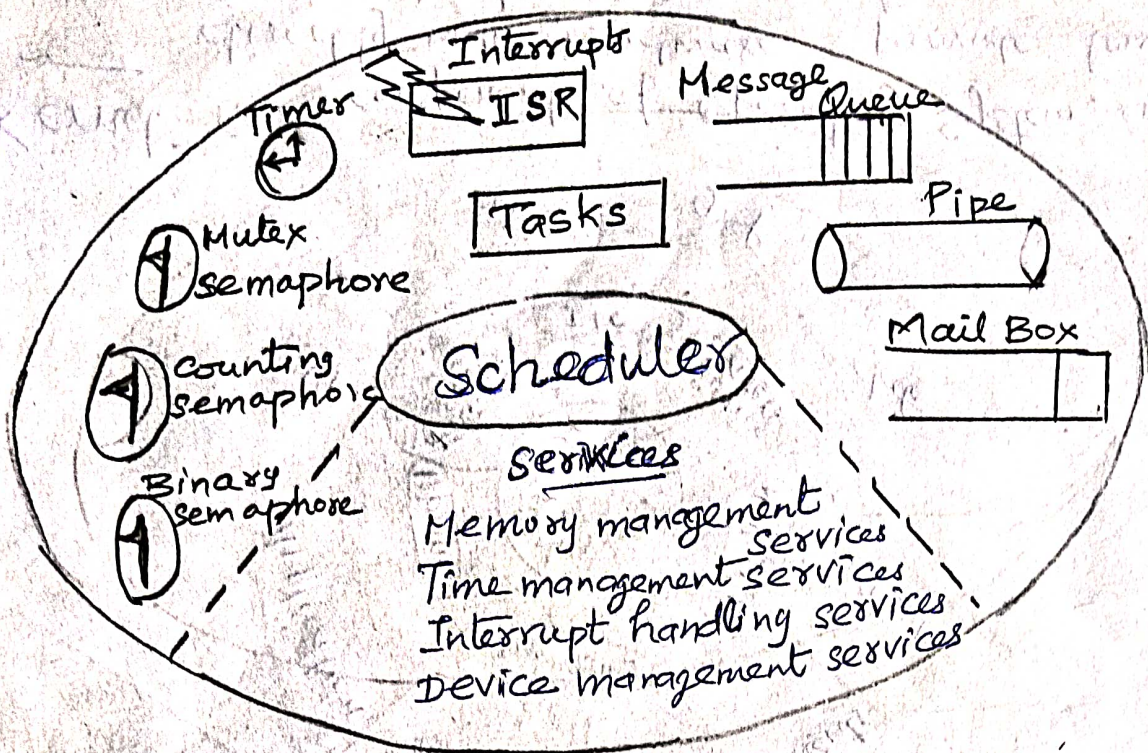 Interrupts
Timer
ISR
Message
Queue
Tasks
Pipe
Mutex
semaphore
Mail Box
Scheduler
Counting
semaphore
services
Binary
semaphore
Memory management
services
Time management services
Interrupt handling services
Device management services